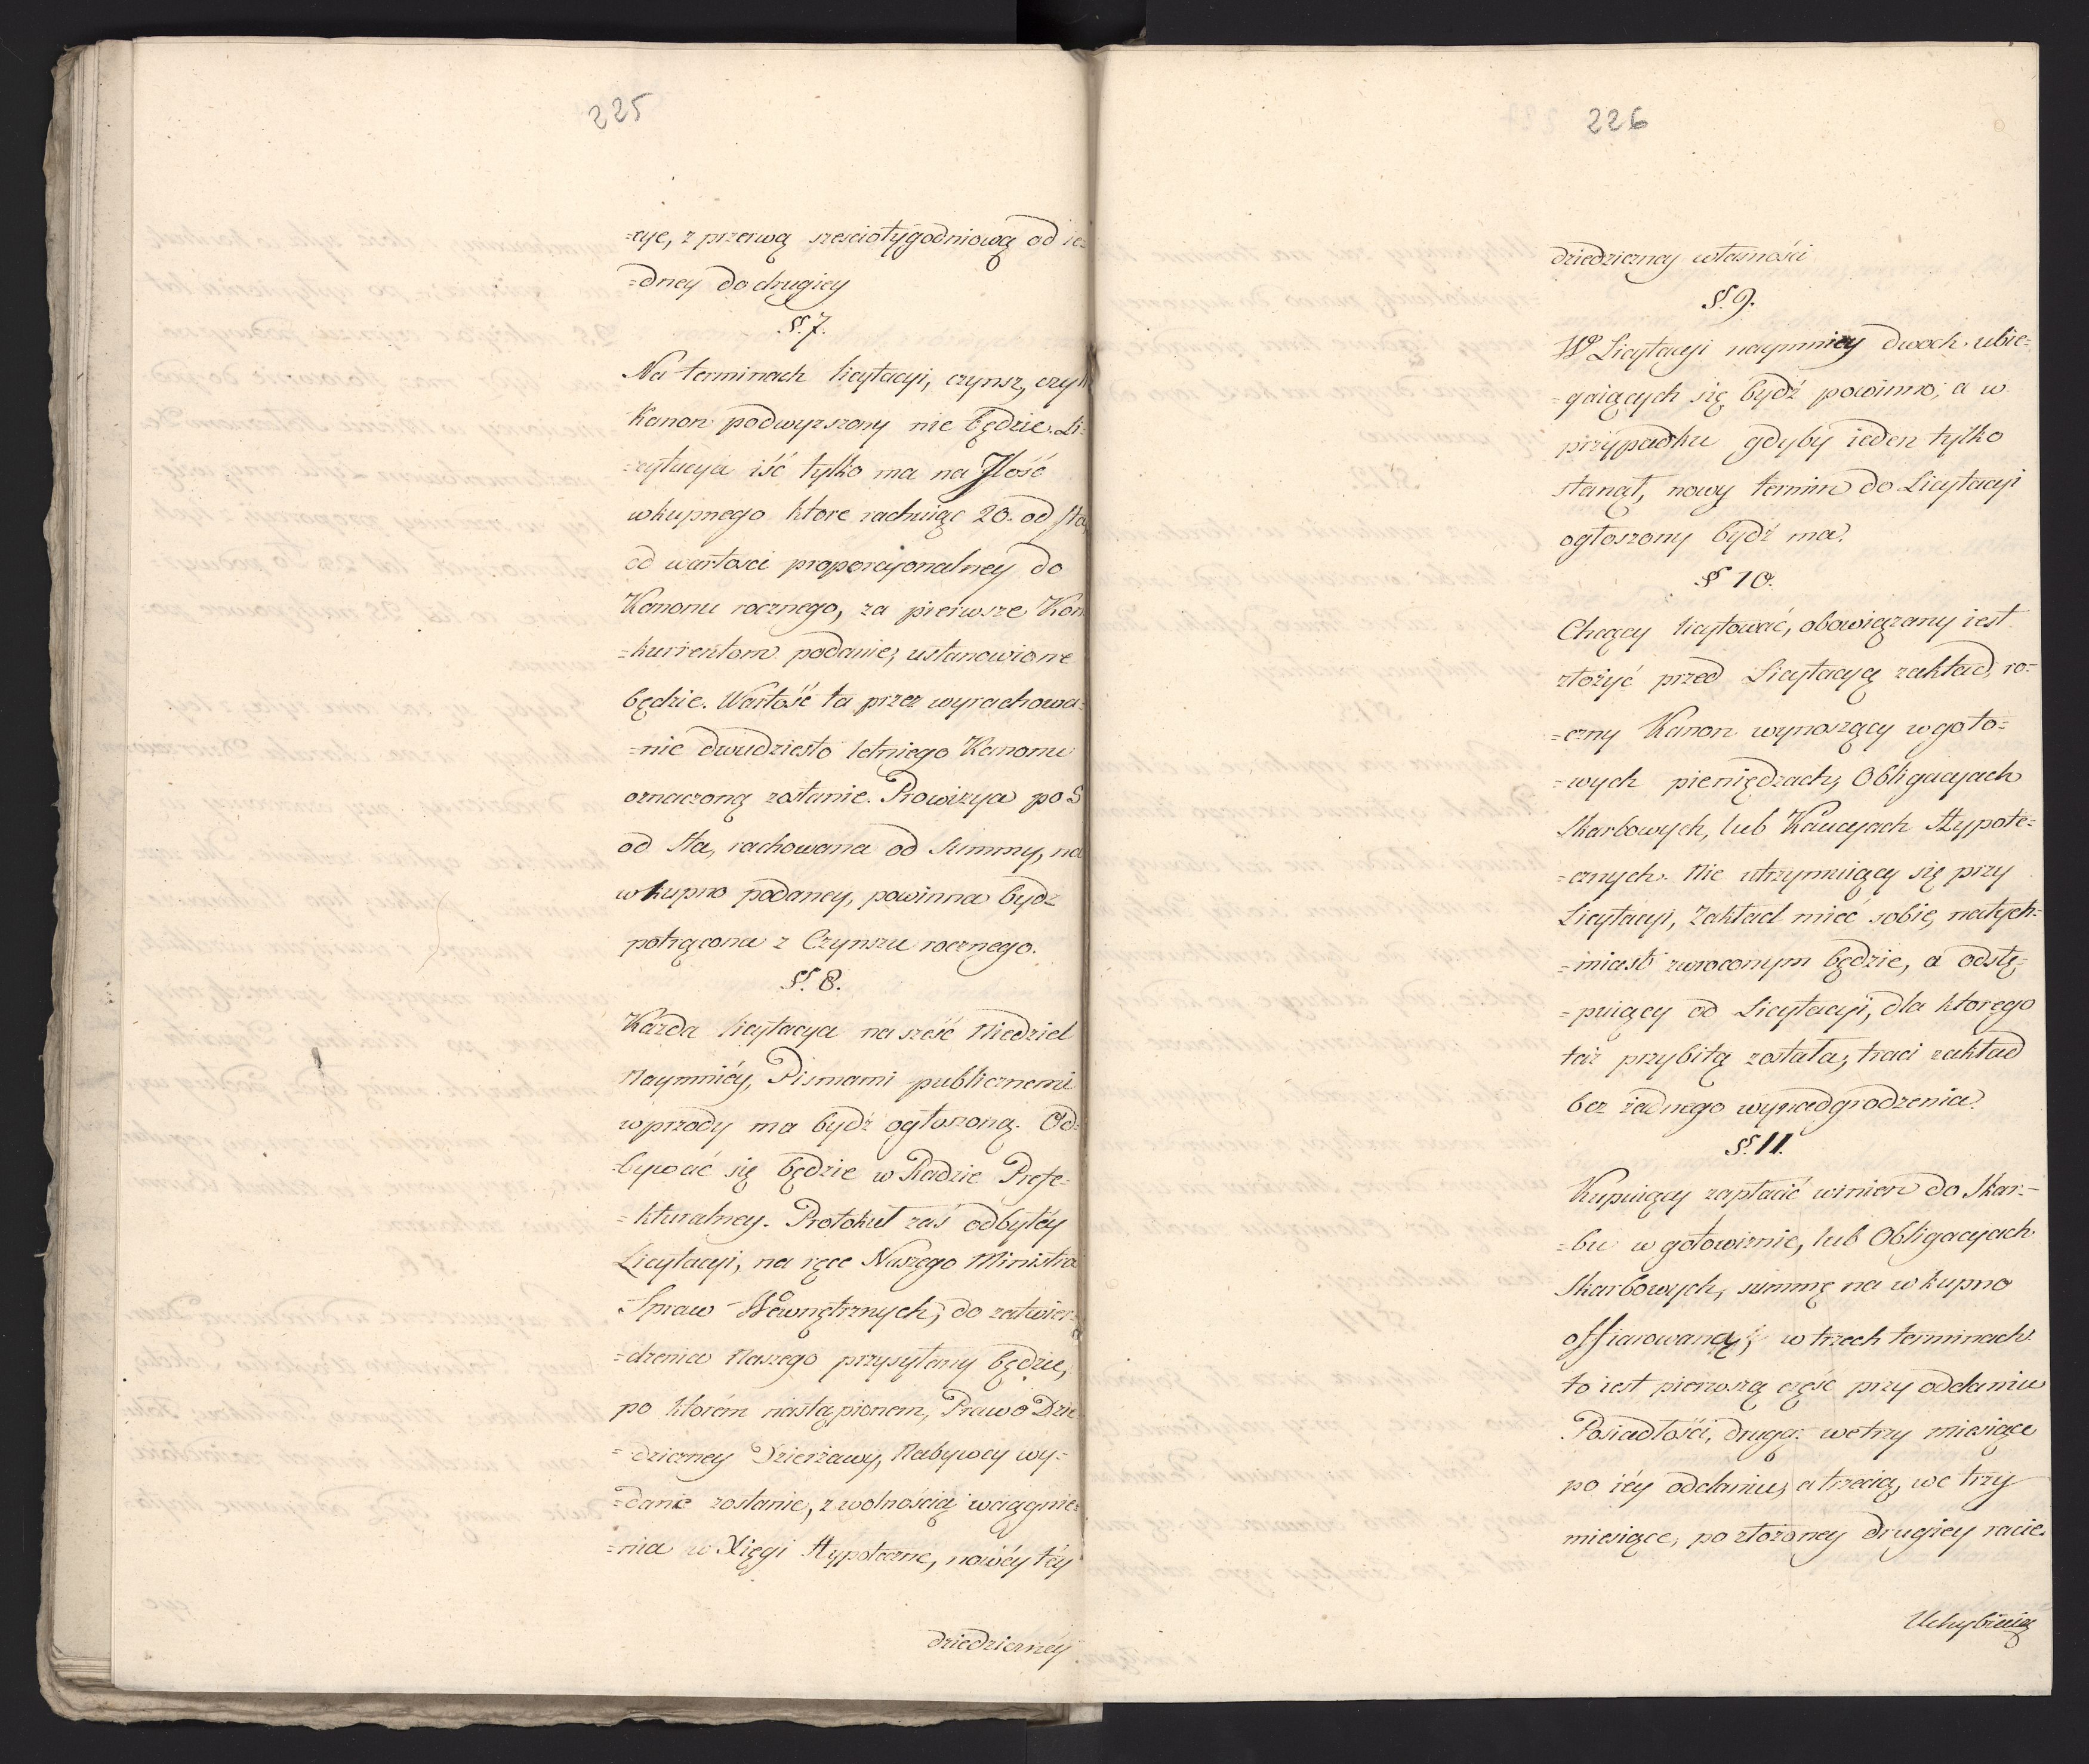 225
=cye, z przerwą sześciotygodniową od ie=
=dney do drugiey
§. 7.
Na terminach licytacyi, czynsz, czyli
Kanon podwyższony nie będzie. Li=
=cytacyia iść tylko ma na Ilość
wkupnego które rachuiąc 20. od sta,
od wartości proporcyonalney do
Kanonu rocznego, za pierwsze Kon
=kurrentom podanie, ustanowione
będzie. Wartość ta przez wyrachowa=
=nie dwudziesto letniego Kanonu
oznaczoną zostanie. Prowizya po 5
od sta, rachowana od Summy, na
wkupno podaney, powinna bydz
potrącona z Czynszu rocznego.
§. 8.
Każda licytacya na sześć Niedziel
Naymniéy, Pismami publicznemi
wprzody ma bydź ogłoszoną. Od=
=bywać się będzie w Radzie Prefe=
=kturalney. Protokuł zaś odbytéy
Licytacyi, na ręce Naszego Ministra
Spraw Wewnętrznych, do zatwier=
=dzenia Naszego przysyłany będzie,
po którém nastąpionem, Prawo Dzie=
=dziczney Dzierżawy, Nabywcy wy=
=danie zostanie, z wolnością wciągnie=
=nia w Xięgi Hypoteczne, nowéy téy
dziedziczney
226
dziedziczney własności
§. 9.
W Licytacyi naymniey dwoch ubie=
=gaiących się bydź powinno, a w
przypadku gdyby ieden tylko
stanął, nowy termin do Licytacyi
ogłoszony bydź ma.
§ 10.
Chcący licytować, obowiązany iest
złożyć przed Licytacyą zakład, ro=
=czny Kanon wynoszący w goto=
=wych pieniędzach, Obligacyach
Skarbowych, lub Kaucyach Hypote=
=cznych. Nie utrzymuiący się przy
Licytacyi, Zakład mieć sobie, natych=
=miast zwroconym będzie, a odstę=
=puiący od Licytacyi, dla ktorego
taż przybitą została, traci zakład
bez żadnego wynadgrodzenia.
§. 11.
Kupuiący zapłacić winien do Skar=
=bu w gotowiznie, lub Obligacyach
Skarbowych, summę na wkupno
offiarowaną, w trzech terminach
to iest pierwszą część przy oddaniu
Posiadłości, drugą we trzy miesiące
po iéy oddaniu, a trzecią, we trzy
miesiące, po złożoney drugiey racie.